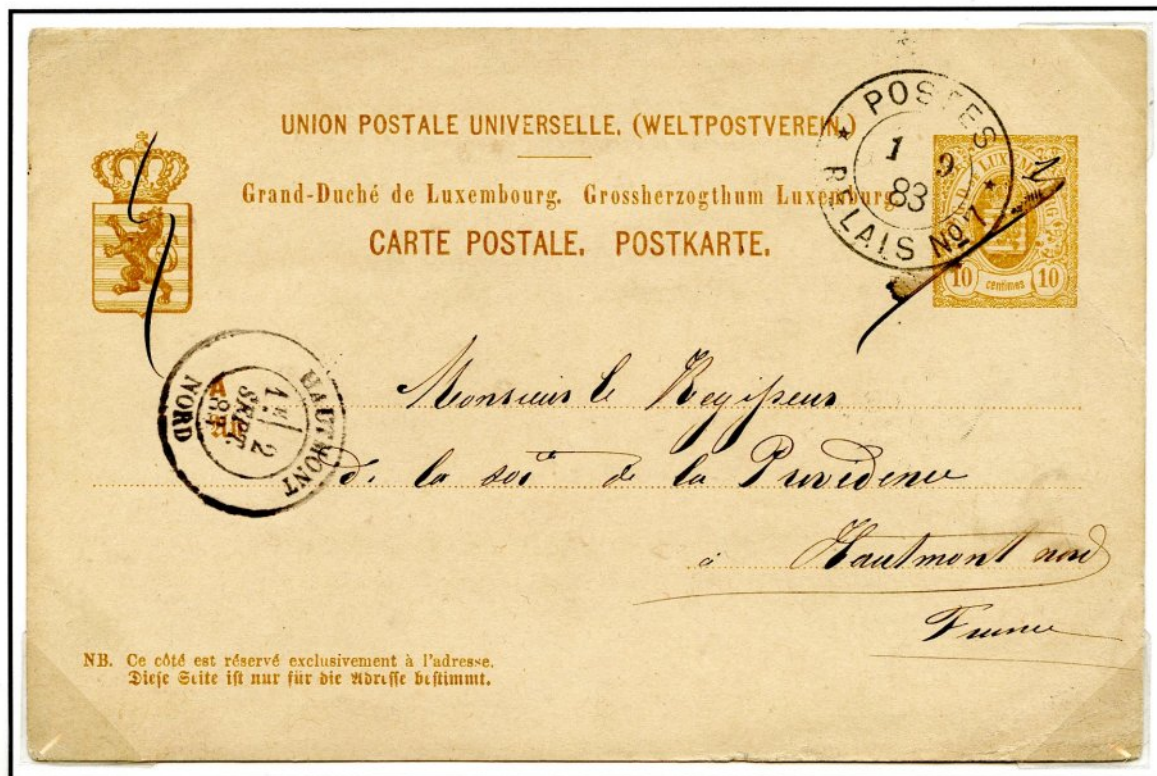 UNION POSTALE UNIVERSELLE. (WELTPOSTVEREIN.)
Grand-Duché de Luxembourg. Grossherzogthum Luxemburg.
CARTE POSTALE. POSTKARTE.
POSTES
1 9
83
RELAIS No 1
LUXEMBURG
10 centimes 10
HAUTMONT
2
SEPT.
NORD
Monsieur le Regisseur
de la soité de la Providence
à Hautmont nord
France
NB. Ce côté est réservé exclusivement à l'adresse.
Diese Seite ist nur für die Adresse bestimmt.